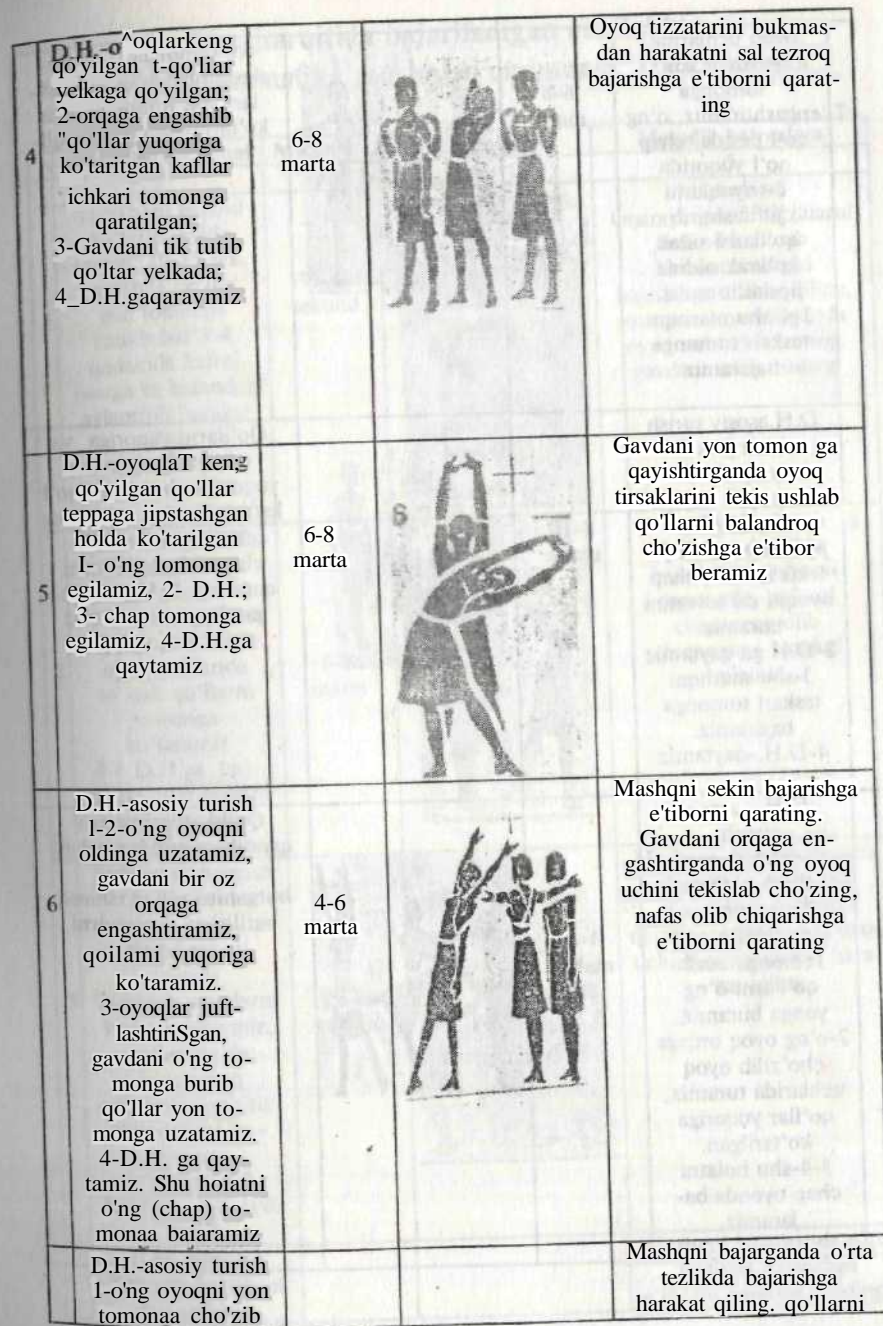 4
D.H.-o^oqlarkeng
qo'yilgan t-qo'liar
yelkaga qo'yilgan;
2-orqaga engashib
"qo'llar yuqoriga
ko'taritgan kafllar
ichkari tomonga
qaratilgan;
3-Gavdani tik tutib
qo'ltar yelkada;
4_D.H.gaqaraymiz
6-8
marta
Oyoq tizzatarini bukmas-
dan harakatni sal tezroq
bajarishga e'tiborni qarat-
ing
5
D.H.-oyoqlaT ken;g
qo'yilgan qo'llar
teppaga jipstashgan
holda ko'tarilgan
I- o'ng lomonga
egilamiz, 2- D.H.;
3- chap tomonga
egilamiz, 4-D.H.ga
qaytamiz
6-8
marta
6
Gavdani yon tomon ga
qayishtirganda oyoq
tirsaklarini tekis ushlab
qo'llarni balandroq
cho'zishga e'tibor
beramiz
6
D.H.-asosiy turish
l-2-o'ng oyoqni
oldinga uzatamiz,
gavdani bir oz
orqaga
engashtiramiz,
qoilami yuqoriga
ko'taramiz.
3-oyoqlar juft-
lashtiriSgan,
gavdani o'ng to-
monga burib
qo'llar yon to-
monga uzatamiz.
4-D.H. ga qay-
tamiz. Shu hoiatni
o'ng (chap) to-
monaa baiaramiz
4-6
marta
Mashqni sekin bajarishga
e'tiborni qarating.
Gavdani orqaga en-
gashtirganda o'ng oyoq
uchini tekislab cho'zing,
nafas olib chiqarishga
e'tiborni qarating
D.H.-asosiy turish
1-o'ng oyoqni yon
tomonaa cho'zib
Mashqni bajarganda o'rta
tezlikda bajarishga
harakat qiling. qo'llarni